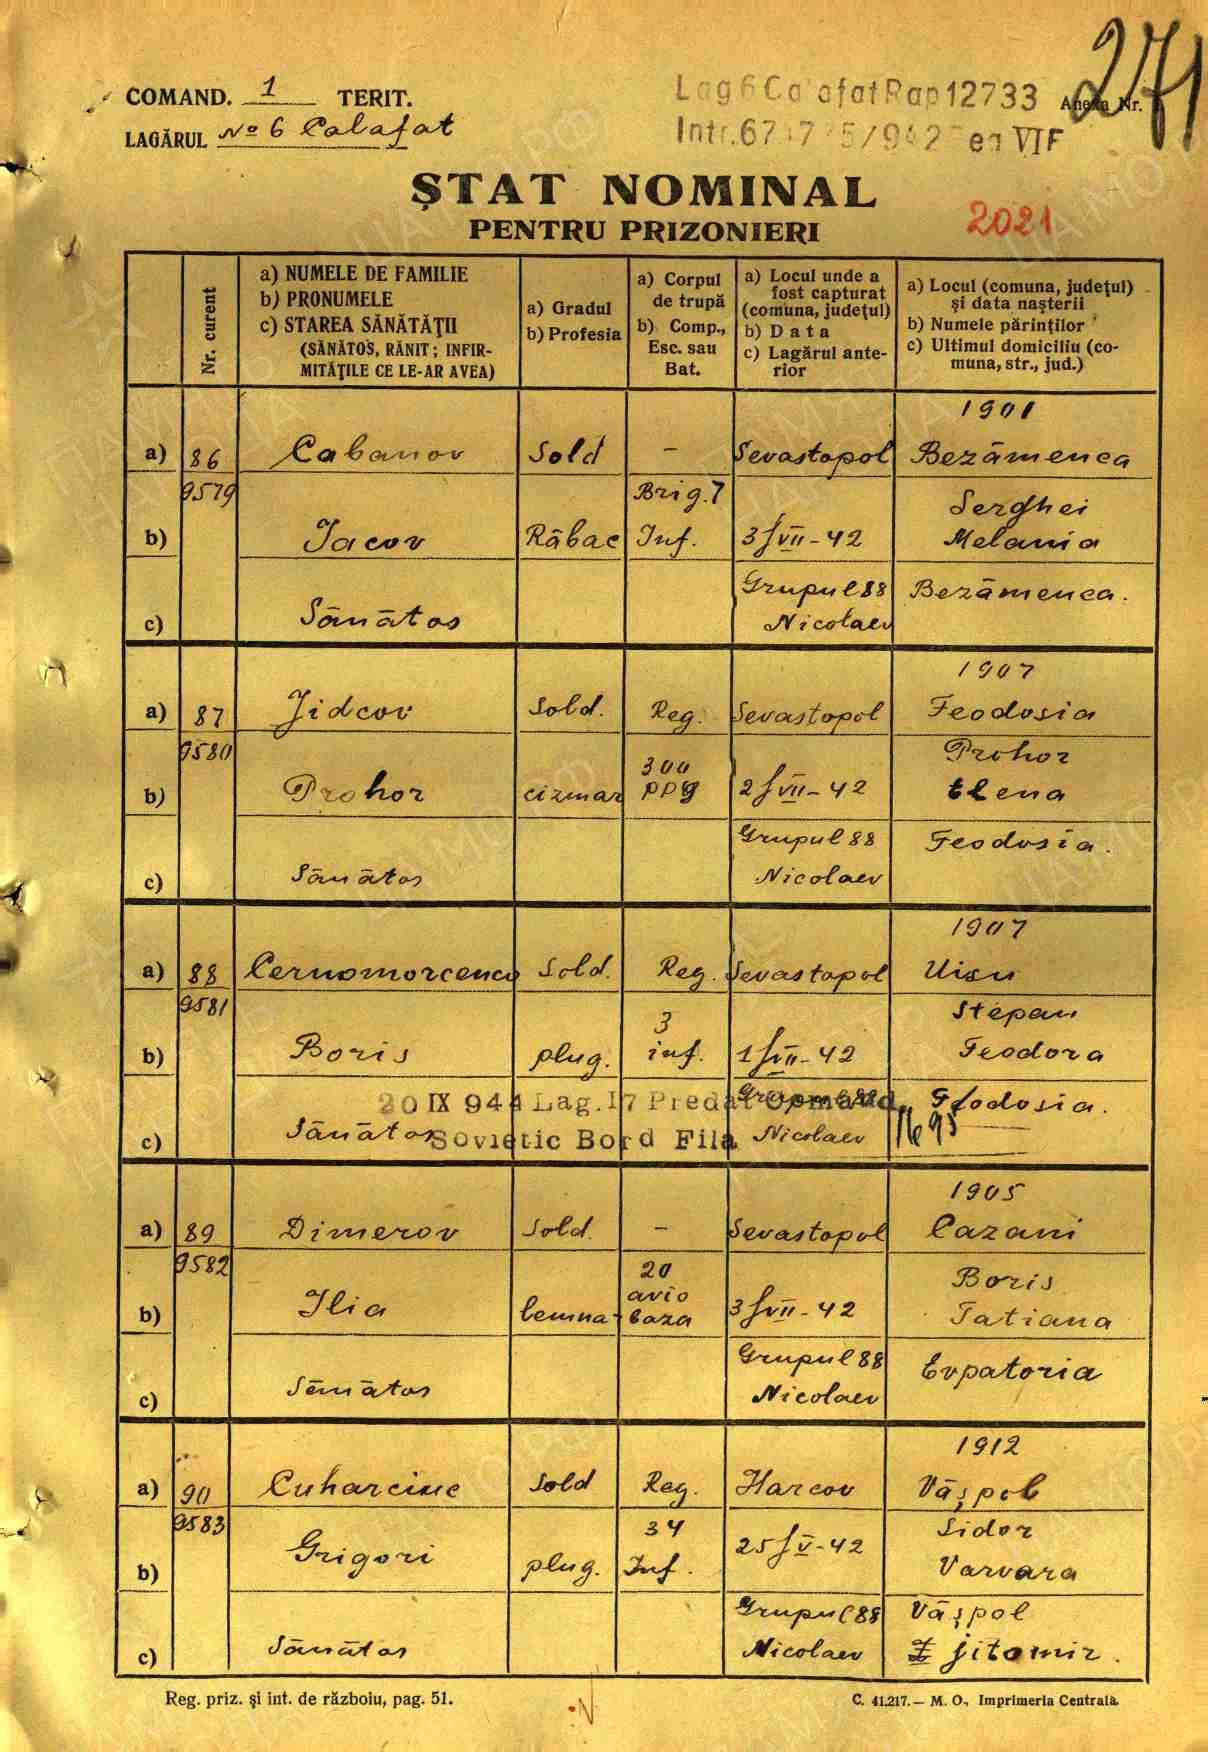 COMAND. 1 TERIT.
LAGĂRUL No 6 Calafat
Lag 6 Calafat Rap 12733
Anexa Nr.
271
ȘTAT NOMINAL
PENTRU PRIZONIERI
2021
Nr. curent
a) NUMELE DE FAMILIE
b) PRONUMELE
c) STAREA SĂNĂTĂȚII
(SĂNĂTOS, RĂNIT; INFIR-
MITĂȚILE CE LE-AR AVEA)
a) Gradul
b) Profesia
a) Corpul
de trupă
b) Comp.,
Esc. sau
Bat.
a) Locul unde a
fost capturat
(comuna, județul)
b) Data
c) Lagărul ante-
rior
a) Locul (comuna, județul)
și data nașterii
b) Numele părinților
c) Ultimul domiciliu (co-
muna, str., jud.)
1901
a) 86 Cabanov Sold - Sevastopol Bezâmenca
9579 Brig. 7 Serghei
b) Iacov Râbac Inf. 3/VII-42 Melania
Grupul 88 Bezâmenca.
c) Sănătos Nicolaev
1907
a) 87 Jidcov Sold. Reg. Sevastopol Feodosia
9580 300 Prohor
b) Prohor cizmar ppg 2/VII-42 Elena
Grupul 88 Feodosia.
c) Sănătos Nicolaev
1907
a) 88 Cernomorcenco Sold. Reg. Sevastopol
9581 3 Stepan
b) Boris plug. inf. 1/VII-42 Feodora
Grupul 88 Feodosia.
20 IX 944 Lag. 17 Predat Comand.
c) Sănătos Nicolaev
Sovietic Bord Fila 1695
1905
a) 89 Dimerov Sold. - Sevastopol Cazani
9582 20 Boris
avio
b) Ilia lemna- baza 3/VII-42 Tatiana
Grupul 88 Evpatoria
c) Sănătos Nicolaev
1912
a) 90 Cuharciuc Sold Reg. Harcov Vâșpol
9583 34 Sidor
b) Grigori plug. Inf. 25/V-42 Varvara
Grupul 88 Vâșpol
c) Sănătos Nicolaev jitomir.
Reg. priz. și int. de războiu, pag. 51.
C. 41.217. — M. O., Imprimeria Centrală.